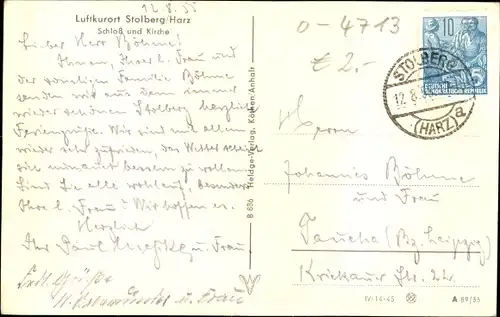 12.8.55
Luftkurort Stolberg/Harz
Schloß und Kirche
Lieber Herr Böhme!
Ihnen, Ihrer l. Frau und
der sonstigen Familie Böhme
senden wir aus dem immer
wieder schönen Stolberg herzliche
Feriengrüße. Wir sind mit allem
wieder sehr zufrieden, das Wetter scheint
sich nun auch bessern zu wollen.
Sind Sie alle wohlauf, besonders
Ihre l. Frau? Wir hoffen es.
Herzlich
Ihr Paul u. Frau
Frdl. Grüße
u. Frau
B 836 Heldge-Verlag, Köthen/Anhalt
0-4713
€ 2.-
10
DEUTSCHE
DEMOKRATISCHE REPUBLIK
STOLBERG
12.8.
(HARZ)
a
Herrn
Johannes Böhme
und Frau
Taucha (Bz. Leipzig)
Str. 22
IV-14-45
A 89/55